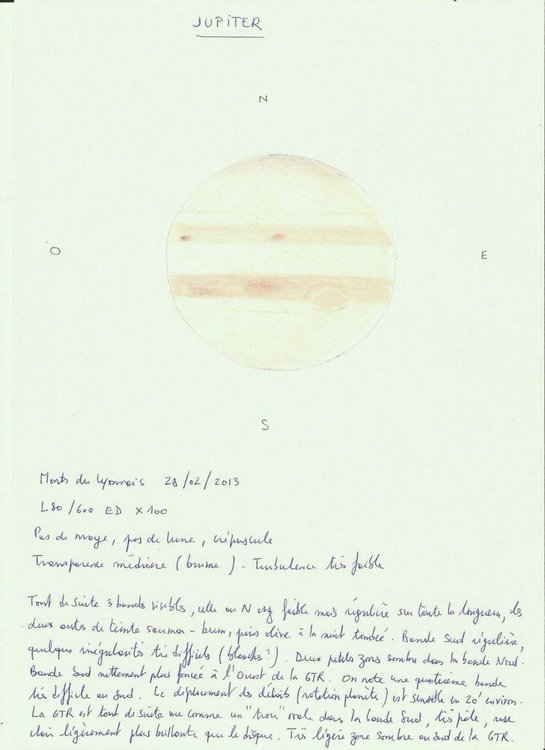 JUPITER
N
O
E
S
Monts du Lyonnais 28/02/2013
L80/600 ED x100
Pas de nuage, pas de lune, crépuscule
Transparence médiocre (brume) - Turbulence très faible
Tout de suite 3 bandes visibles, celle au N assez faible mais régulière sur toute la longueur, les
deux autres de teinte saumon-brun, puis olive à la nuit tombée. Bande Sud régulière,
quelques irrégularités très difficiles (blanches?). Deux petites zones sombres dans la bande Nord.
Bande Sud nettement plus foncée à l'Ouest de la GTR. On note une quatrième bande
très difficile au Sud. Le déplacement des détails (rotation planète) est sensible en 20' environ.
La GTR est tout de suite vue comme un "trou" ovale dans la bande Sud, très pâle, rose
clair légèrement plus brillante que le disque. Très légère zone sombre au Sud de la GTR.